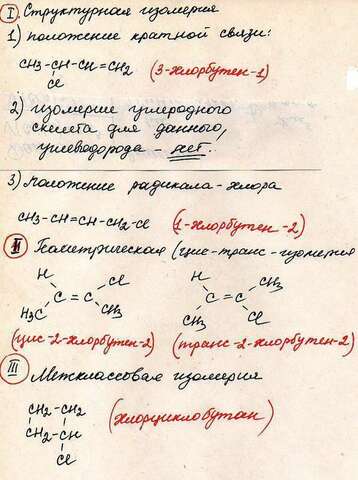 I. Структурная изомерия
1) положение кратной связи:
CH3-CH-CH=CH2 (3-хлорбутен-1)
Cl
2) изомерие углеродного
скелета для данного,
углеводорода - нет.
3) положение радикала-хлора
CH3-CH=CH-CH2-Cl (1-хлорбутен-2)
II Геометрическая (цис-транс-изомерия
H Cl H CH3
C=C C=C
H3C CH3 CH3 Cl
(цис-2-хлорбутен-2) (транс-2-хлорбутен-2)
III Межклассовая изомерия
CH2-CH2 (хлорциклобутан)
CH2-CH
Cl